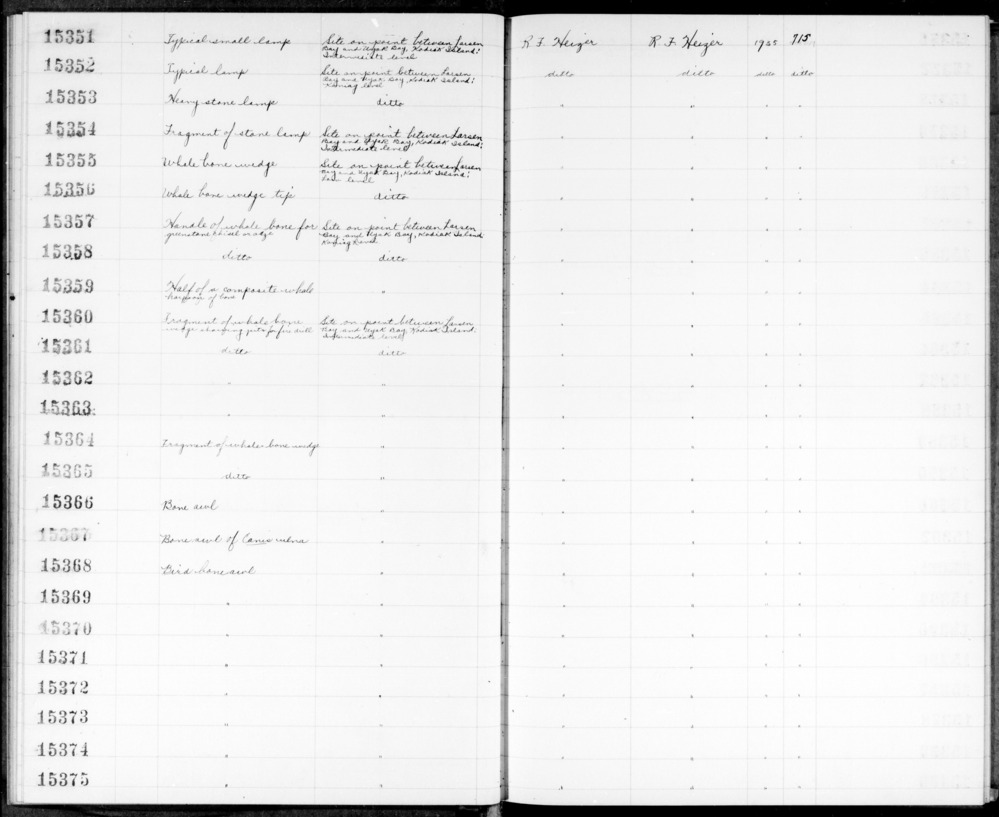 15351 Typical small lamp Site on point between Larsen R F Heizer R F Heizer 1935 715
Bay and Uyak Bay, Kodiak Island:
Intermediate level
15352 Typical lamp Site on point between Larsen ditto ditto ditto ditto
Bay and Uyak Bay, Kodiak Island:
Koniag level
15353 Heavy stone lamp ditto " " " "
15354 Fragment of stone lamp Site on point between Larsen " " " "
Bay and Uyak Bay, Kodiak Island:
Intermediate level
15355 Whale bone wedge Site on point between Larsen " " " "
Bay and Uyak Bay, Kodiak Island:
level
15356 Whale bone wedge tip ditto " " " "
15357 Handle of whale bone for Site on point between Larsen " " " "
greenstone chisel or adze Bay and Uyak Bay, Kodiak Island
Koniag level
15358 ditto ditto " " " "
15359 Half of a composite whale " " " " "
of bone
15360 Fragment of whale bone Site on point between Larsen " " " "
wedge showing pits for fire drill Bay and Uyak Bay, Kodiak Island
Intermediate level
15361 ditto ditto " " " "
15362 " " " " " "
15363 " " " " " "
15364 Fragment of whale bone wedge " " " " "
15365 ditto " " " " "
15366 Bone awl " " " " "
15367 Bone awl of Canis ulna " " " " "
15368 Bird bone awl " " " " "
15369 " " " " " "
15370 " " " " " "
15371 " " " " " "
15372 " " " " " "
15373 " " " " " "
15374 " " " " " "
15375 " " " " " "